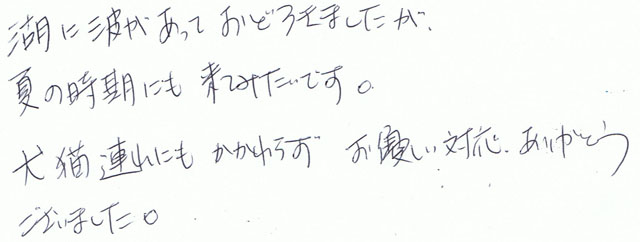 湖に波があっておどろきましたが、
夏の時期にも来てみたいです。
犬猫連れにもかかわらず お優しい対応、ありがとう
ございました。